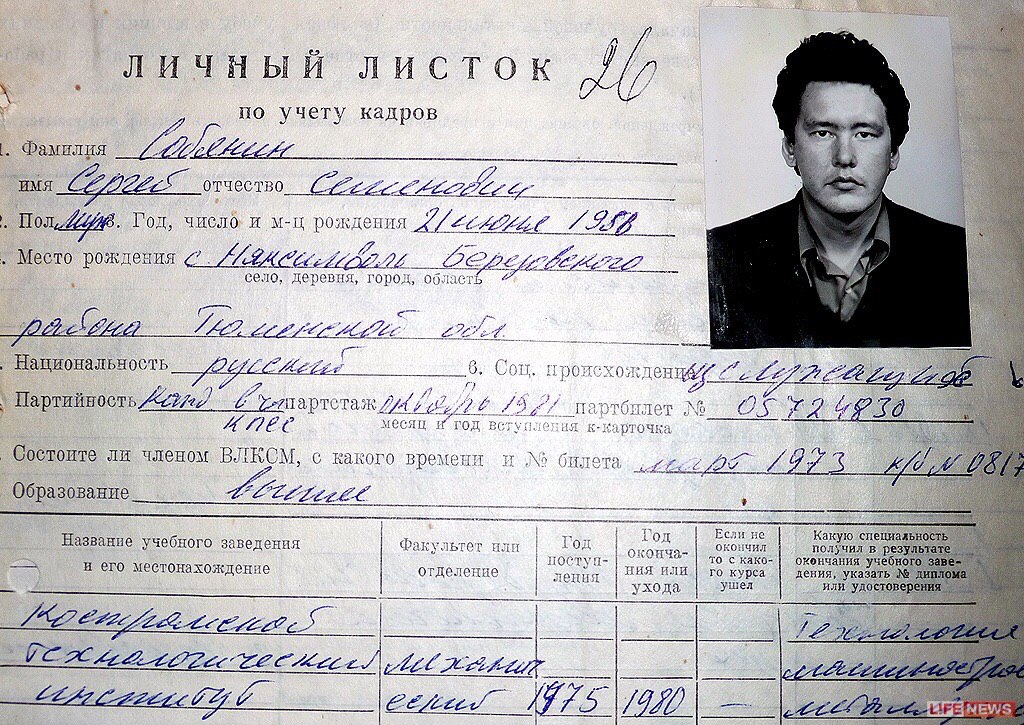 ЛИЧНЫЙ ЛИСТОК 26
по учету кадров
1. Фамилия Собянин
имя Сергей отчество Семенович
2. Пол муж 3. Год, число и м-ц рождения 21 июня 1958
. Место рождения с Няксимволь Березовского
село, деревня, город, область
района Тюменской обл.
. Национальность русский 6. Соц. происхождение из служащих
Партийность канд в чл партстаж октябрь 1981 партбилет № 05724830
КПСС месяц и год вступления к-карточка
. Состоите ли членом ВЛКСМ, с какого времени и № билета март 1973 к/б N 0817
Образование высшее
Название учебного заведения и его местонахождение
Факультет или отделение
Год поступ-
ления
Год
оконча-
ния или
ухода
Если не
окончил
то с како-
го курса
ушел
Какую специальность
получил в результате
окончания учебного заве-
дения, указать № диплома
или удостоверения
Костромской Технология
технологический механич машиностро
институт еский 1975 1980 —
LIFE NEWS